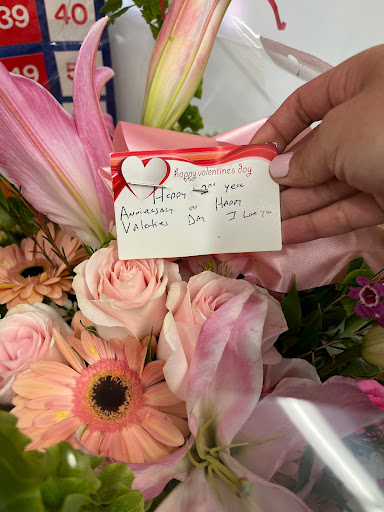 39 40
39 50
happy valentine's day
Happy 2nd year
Anniversary on Happy
Valentines Day I Love You